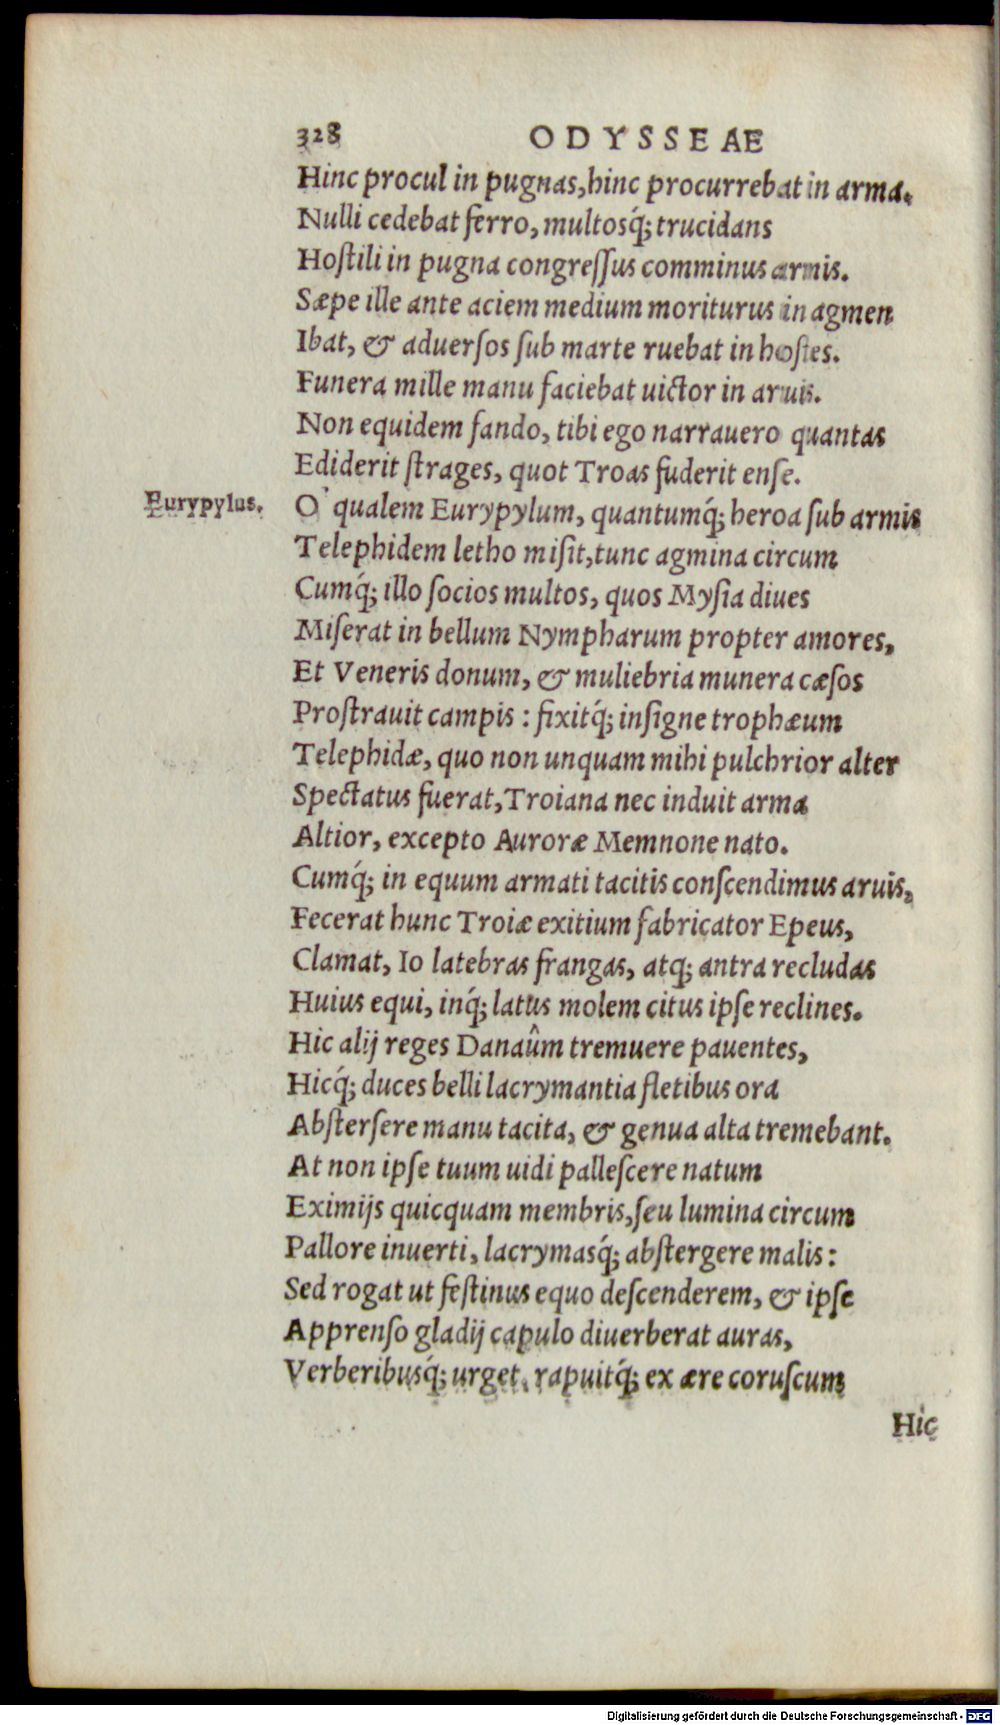 328 ODYSSEAE
Hinc procul in pugnas, hinc procurrebat in arma.
Nulli cedebat ferro, multosq́; trucidans
Hoſtili in pugna congreſſus comminus armis.
Sæpe ille ante aciem medium moriturus in agmen
Ibat, & aduerſos ſub marte ruebat in hoſtes.
Funera mille manu faciebat uictor in aruis.
Non equidem fando, tibi ego narrauero quantas
Ediderit ſtrages, quot Troas fuderit enſe.
Eurypylus. O' qualem Eurypylum, quantumq́; heroa ſub armis
Telephidem letho miſit, tunc agmina circum
Cumq́; illo ſocios multos, quos Myſia diues
Miſerat in bellum Nympharum propter amores,
Et Veneris donum, & muliebria munera cæſos
Proſtrauit campis : fixitq́; inſigne trophæum
Telephidæ, quo non unquam mihi pulchrior alter
Spectatus fuerat, Troiana nec induit arma
Altior, excepto Auroræ Memnone nato.
Cumq́; in equum armati tacitis conſcendimus aruis,
Fecerat hunc Troiæ exitium fabricator Epeus,
Clamat, Io latebras frangas, atq; antra recludas
Huius equi, inq́; latus molem citus ipſe reclines.
Hic alij reges Danaûm tremuere pauentes,
Hicq́; duces belli lacrymantia fletibus ora
Abſterſere manu tacita, & genua alta tremebant.
At non ipſe tuum uidi palleſcere natum
Eximijs quicquam membris, ſeu lumina circum
Pallore inuerti, lacrymasq́; abſtergere malis :
Sed rogat ut feſtinus equo deſcenderem, & ipſe
Apprenſo gladij capulo diuerberat auras,
Verberibusq́; urget, rapuitq́; ex ære coruſcum
Hic
Digitalisierung gefördert durch die Deutsche Forschungsgemeinschaft - DFG